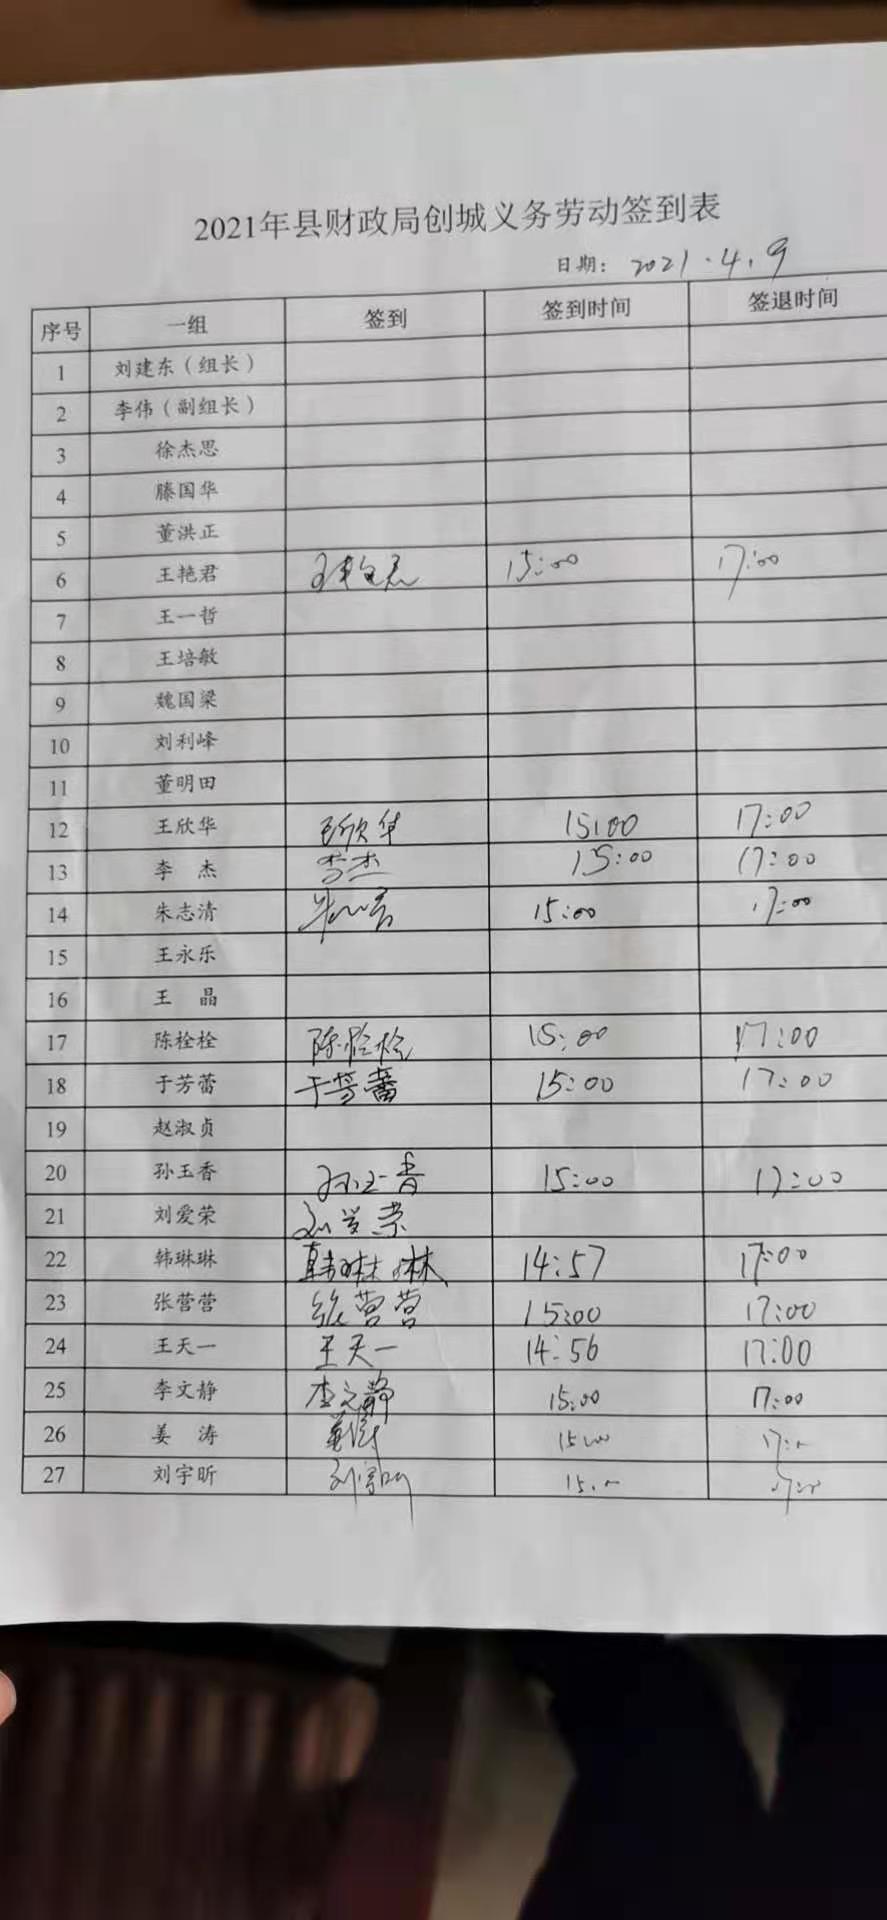 2021年县财政局创城义务劳动签到表
日期: 2021.4.9
序号 一组 签到 签到时间 签退时间
1 刘建东（组长）
2 李伟（副组长）
3 徐杰思
4 滕国华
5 董洪正
6 王艳君 王艳君 15:00 17:00
7 王一哲
8 王培敏
9 魏国梁
10 刘利峰
11 董明田
12 王欣华 王欣华 15:00 17:00
13 李 杰 李杰 15:00 17:00
14 朱志清 朱志清 15:00 17:00
15 王永乐
16 王 晶
17 陈栓栓 陈栓栓 15:00 17:00
18 于芳蕾 于芳蕾 15:00 17:00
19 赵淑贞
20 孙玉香 孙玉香 15:00 17:00
21 刘爱荣 刘爱荣
22 韩琳琳 韩琳琳 14:57 17:00
23 张营营 张营营 15:00 17:00
24 王天一 王天一 14:56 17:00
25 李文静 李文静 15:00 17:00
26 姜 涛 姜涛 15:00 17:00
27 刘宇昕 刘宇昕 15:00 17:00